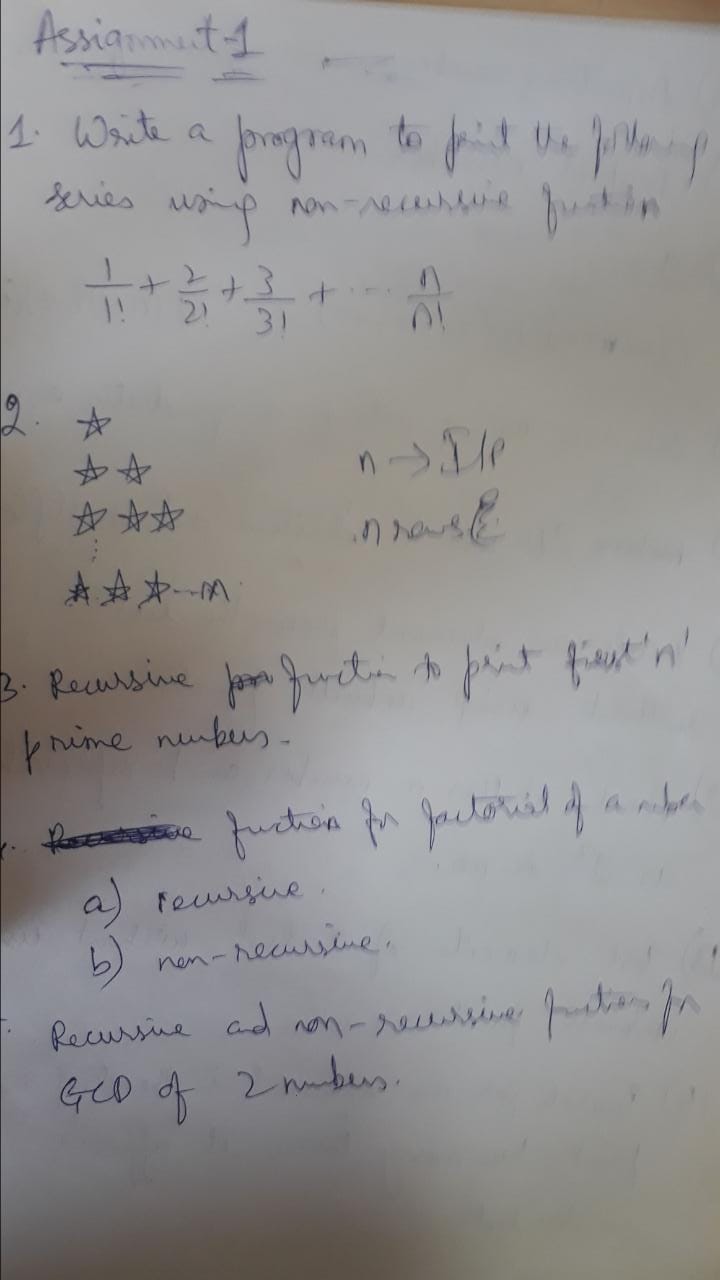 Assignment-1
1. Write a program to print the following
series using non-recursive function
1/1! + 2/2! + 3/3! + ... n/n!
2. ☆
☆ ☆ n → I/P
☆ ☆ ☆ n rows
⋮
☆ ☆ ☆ --- n
3. Recursive function to print first 'n'
prime numbers.
function for factorial of a number
a) recursive.
b) non-recursive.
Recursive and non-recursive function for
GCD of 2 numbers.